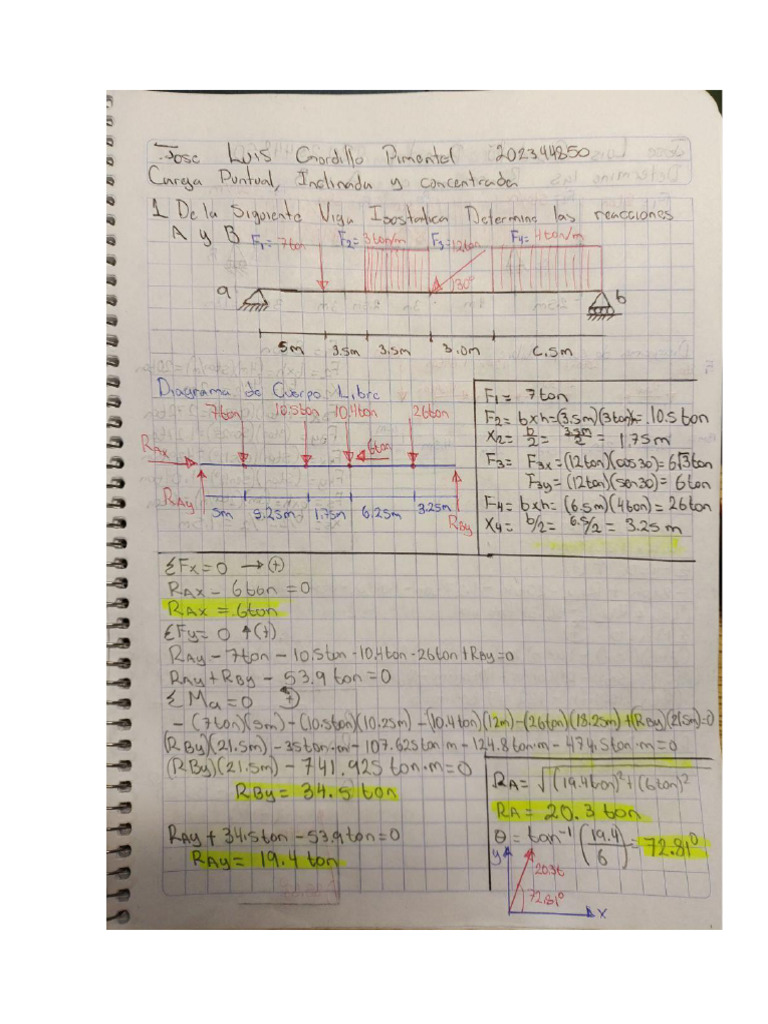 Jose Luis Gordillo Pimentel 202344850
Carga Puntual, Inclinada y concentrada
1 De la Siguiente Viga Isostatica Determine las reacciones
A y B F₁= 7ton F₂= 3ton/m F₃= 12ton F₄= 4ton/m
30°
a b
5m 3.5m 3.5m 3.0m 6.5m
Diagrama de Cuerpo Libre
7ton 10.5ton 10.4ton 26ton
RAx 6ton
RAy RBy
5m 5.25m 1.75m 6.25m 3.25m
F₁= 7ton
F₂= bxh=(3.5m)(3ton)=10.5ton
X₂= b/2 = 3.5m/2 = 1.75m
F₃= F₃x=(12ton)(cos30)=6√3ton
F₃y=(12ton)(sen30)=6ton
F₄=bxh=(6.5m)(4ton)=26ton
X₄= b/2= 6.5/2 = 3.25m
ΣFx=0 →(+)
RAx - 6ton=0
RAx = 6ton
ΣFy= 0 ↑(+)
RAy-7ton-10.5ton-10.4ton-26ton+RBy=0
RAy+RBy-53.9ton=0
ΣMa=0
-(7ton)(5m)-(10.5ton)(10.25m)-(10.4ton)(12m)-(26ton)(18.25m)+(RBy)(21.5m)=0
(RBy)(21.5m)-35ton·m-107.625ton·m-124.8ton·m-474.5ton·m=0
(RBy)(21.5m)-741.925ton·m=0
RBy= 34.5ton
RAy+34.5ton-53.9ton=0
RAy= 19.4ton
RA=√(19.4ton)²+(6ton)²
RA= 20.3ton
θ= tan⁻¹(19.4/6)=72.81°
y
20.3t
72.81°
x